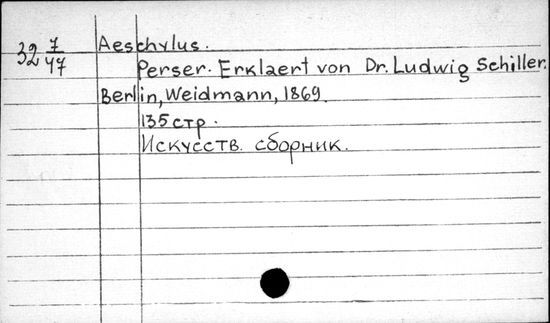 32 7/47 Aeschylus.
Perser. Erklaert von Dr. Ludwig Schiller.
Berlin, Weidmann, 1869.
135 стр.
Искусств. сборник.